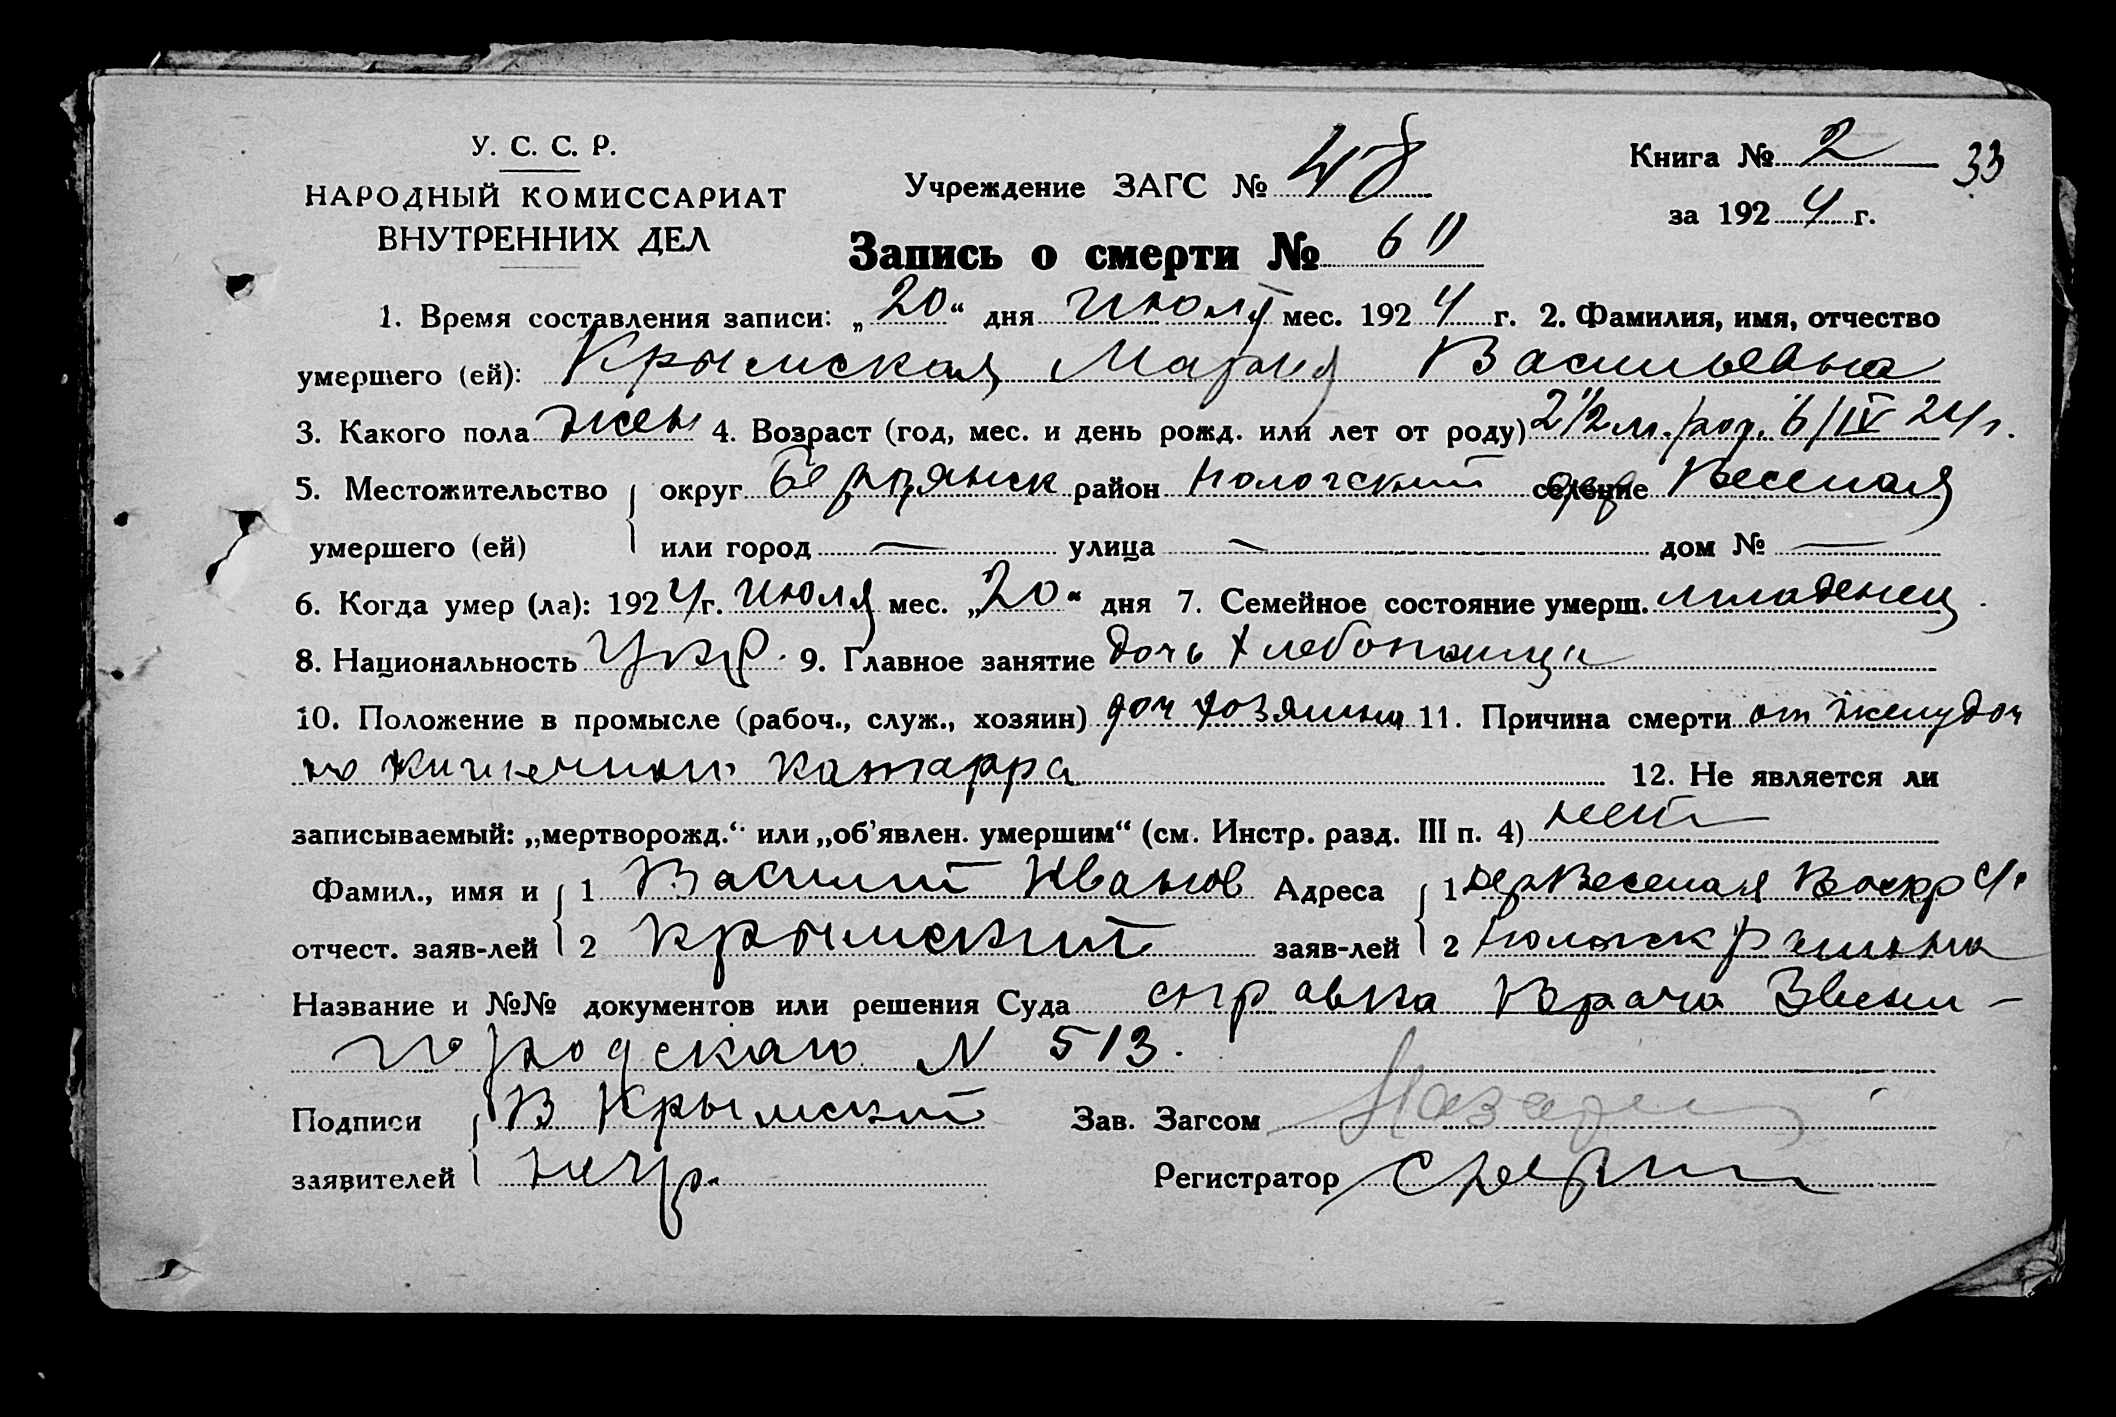 У. С. С. Р.
НАРОДНЫЙ КОМИССАРИАТ
ВНУТРЕННИХ ДЕЛ
Учреждение ЗАГС № 48
Книга № 2 33
за 1924 г.
Запись о смерти № 60
1. Время составления записи: „20“ дня Июля мес. 1924 г. 2. Фамилия, имя, отчество
умершего (ей): Крымская Мария Васильевна
3. Какого пола жен 4. Возраст (год, мес. и день рожд. или лет от роду) 2 1/2 м. род. 6/IV 24 г.
5. Местожительство округ Бердянск район Пологский селение дер Веселая
умершего (ей) или город — улица — дом № —
6. Когда умер (ла): 1924 г. июля мес. „20“ дня 7. Семейное состояние умерш. младенец.
8. Национальность Укр. 9. Главное занятие дочь хлебопашца
10. Положение в промысле (рабоч., служ., хозяин) доч хозяина 11. Причина смерти от желудоч
но кишечного катарра 12. Не является ли
записываемый: „мертворожд.“ или „об'явлен. умершим“ (см. Инстр. разд. III п. 4) нет
Фамил., имя и 1 Василий Иванов Адреса 1 дер Веселая Воскр с/с
отчест. заяв-лей 2 Крымский заяв-лей 2 Пологск района
Название и №№ документов или решения Суда справка Врача Звени-
городскаго N 513.
Подписи В Крымский Зав. Загсом
заявителей негр. Регистратор